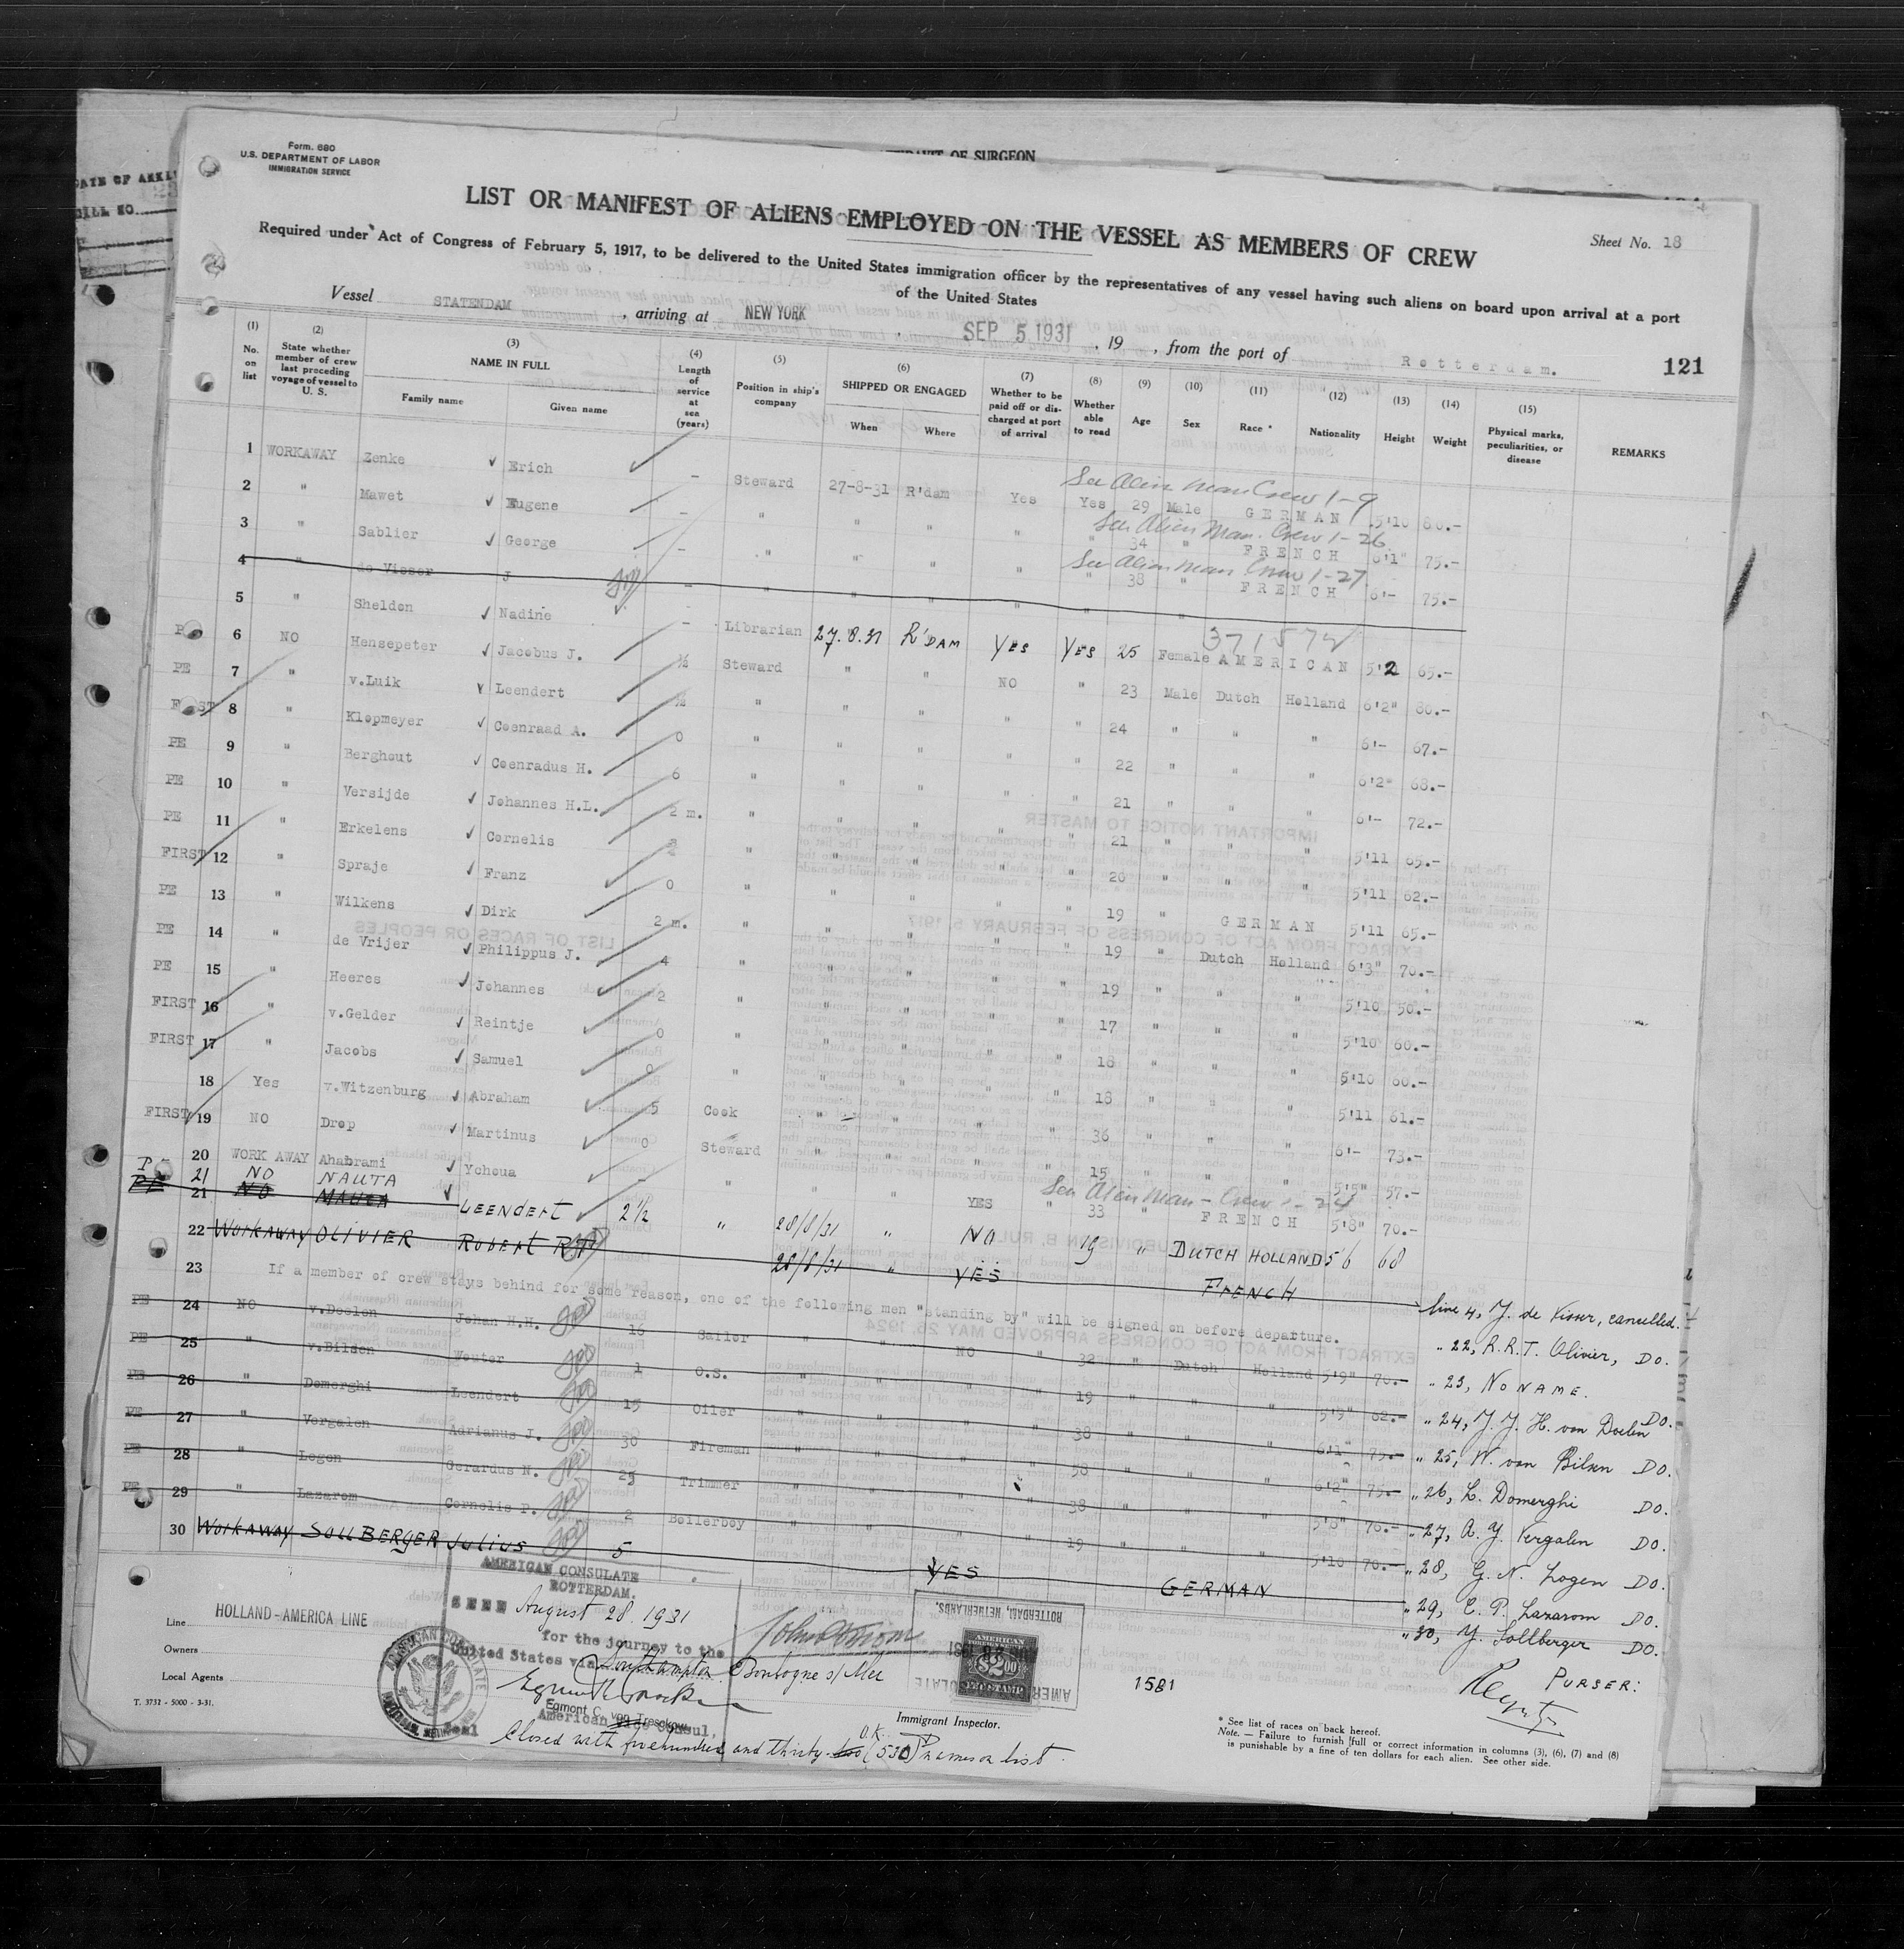 AFFIDAVIT OF SURGEON
Form. 680
U.S. DEPARTMENT OF LABOR
IMMIGRATION SERVICE
LIST OR MANIFEST OF ALIENS EMPLOYED ON THE VESSEL AS MEMBERS OF CREW
Sheet No. 18
Required under Act of Congress of February 5, 1917, to be delivered to the United States immigration officer by the representatives of any vessel having such aliens on board upon arrival at a port
of the United States
Vessel STATENDAM , arriving at NEW YORK , SEP 5 1931 , 19 , from the port of Rotterdam.
121
(1) No. on list
(2) State whether member of crew last preceding voyage of vessel to U. S.
(3) NAME IN FULL Family name Given name
(4) Length of service at sea (years)
(5) Position in ship's company
(6) SHIPPED OR ENGAGED When Where
(7) Whether to be paid off or discharged at port of arrival
(8) Whether able to read
(9) Age
(10) Sex
(11) Race *
(12) Nationality
(13) Height
(14) Weight
(15) Physical marks, peculiarities, or disease
REMARKS
See Alien Man Crew 1-9
1 WORKAWAY Zenke Erich - Steward 27-8-31 R'dam Yes Yes 29 Male GERMAN 5'10 80.-
See Alien Man. Crew 1-26
2 " Mawet Eugene - " " " " " 34 " FRENCH 6'1" 75.-
See Alien Man Crew 1-27
3 " Sablier George - " " " " " 38 " FRENCH 6'- 75.-
4 " de Visser J - " " " " " "
371572
5 " Sheldon Nadine - Librarian 27.8.31 R'DAM YES YES 25 Female AMERICAN 5'2 65.-
6 NO Hensepeter Jacobus J. ½ Steward " " NO " 23 Male Dutch Holland 6'2" 80.-
PE 7 " v.Luik Leendert ½ " " " " " 24 " " " 6'- 67.-
FIRST 8 " Klopmeyer Coenraad A. 0 " " " " " 22 " " " 6'2" 68.-
PE 9 " Berghout Coenradus H. 6 " " " " " 21 " " " 6'- 72.-
PE 10 " Versijde Johannes H.L. 2 m. " " " " " 21 " " " 5'11 65.-
PE 11 " Erkelens Cornelis " " " " " 20 " " " 5'11 62.-
FIRST 12 " Spraje Franz 0 " " " " " 19 " GERMAN 5'11 65.-
PE 13 " Wilkens Dirk 2 m. " " " " " 19 " Dutch Holland 6'3" 70.-
PE 14 " de Vrijer Philippus J. 4 " " " " " 19 " " " 5'10 50.-
PE 15 " Heeres Johannes 2 " " " " " 17 " " " 5'10 60.-
FIRST 16 " v.Gelder Reintje 0 " " " " " 18 " " " 5'10 60.-
FIRST 17 " Jacobs Samuel 0 " " " " " 18 " " " 5'11 61.-
18 Yes v.Witzenburg Abraham 5 Cook " " " " 36 " " " 6'- 73.-
FIRST 19 NO Drop Martinus 0 Steward " " " " 15 " " " 5'5" 57.-
See Alien Man - Crew 1-24
20 WORK AWAY Ahabrami Ychoua - " " " YES " 33 " FRENCH 5'8" 70.-
21 NO NAUTA
PE 21 NO LEENDERT 2½ " 28/8/31 " NO 19 " DUTCH HOLLAND 5 6 68
22 WORKAWAY OLIVIER ROBERT R.T. 28/8/31 " YES FRENCH
23 If a member of crew stays behind for some reason, one of the following men "standing by" will be signed on before departure.
PE 24 NO v.Doelen Johan H.H. 16 Sailor " " NO " 32 " Dutch Holland 5'9" 70.-
PE 25 " v.Bilden Wouter 1 O.S. " " " " 19 " " " 5'9" 62.-
PE 26 " Domerghi Leendert 15 Oiler " " " " 38 " " " 6'1" 75.-
PE 27 " Vergalen Adrianus J. 30 Fireman " " " " 58 " " " 6'2" 75.-
PE 28 " Logen Gerardus N. Trimmer " " " " 38 " " " 5'8" 70.-
PE 29 " Lazarom Cornelis P. 2 Boilerboy " " " " 19 " " " 5'10 70.-
30 WORKAWAY SOLLBERGER JULIUS 5 YES GERMAN
line 4, J. de Visser, cancelled.
" 22, R.R.T. Olivier, DO.
" 23, NO NAME.
" 24, J. J. H. van Doelen DO.
" 25, W. van Bilsen DO.
" 26, L. Domerghi DO.
" 27, A. J. Vergalen DO.
" 28, G. N. Logen DO.
" 29, C. P. Lazarom DO.
" 30, J. Sollberger DO.
PURSER:
Line HOLLAND-AMERICA LINE
Owners
Local Agents
T. 3731 - 5000 - 3-31.
AMERICAN CONSULATE
ROTTERDAM.
SEEN August 28. 1931
for the journey to the
United States via Southampton Boulogne s/Mer
Egmont C. von Tresckow
American Vice Consul.
Seal
ROTTERDAM, NETHERLANDS.
AMERICAN
FOREIGN SERVICE
$2.00
FEE STAMP
1581
Immigrant Inspector.
O.K.
Closed with fivehundred and thirty (530) names on list.
* See list of races on back hereof.
Note. — Failure to furnish full or correct information in columns (3), (6), (7) and (8)
is punishable by a fine of ten dollars for each alien. See other side.